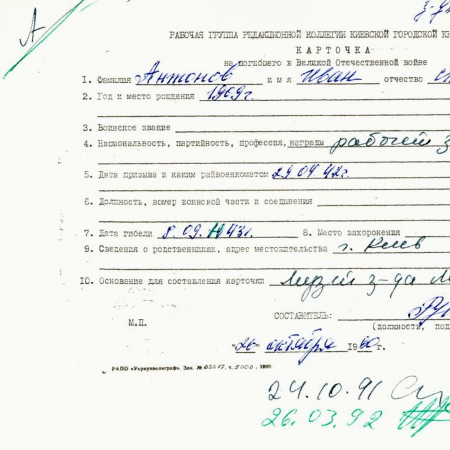 РАБОЧАЯ ГРУППА РЕДАКЦИОННОЙ КОЛЛЕГИИ КИЕВСКОЙ ГОРОДСКОЙ КН
КАРТОЧКА
на погибшего в Великой Отечественной войне
1. Фамилия Антонов имя Иван отчество
2. Год и место рождения 1909г.
3. Воинское звание
4. Национальность, партийность, профессия, награды рабочий з
5. Дата призыва и каким райвоенкоматом 29 04 42г.
6. Должность, номер воинской части и соединения
7. Дата гибели 8.09.1943г. 8. Место захоронения
9. Сведения о родственниках, адрес местожительства г. Киев
10. Основание для составления карточки Музей з-да
СОСТАВИТЕЛЬ:
М.П. (должность, под
"26" октября 1990г.
РАПО «Укрвузполиграф». Зак. т. 5000. 1990.
24.10.91
26.03.92